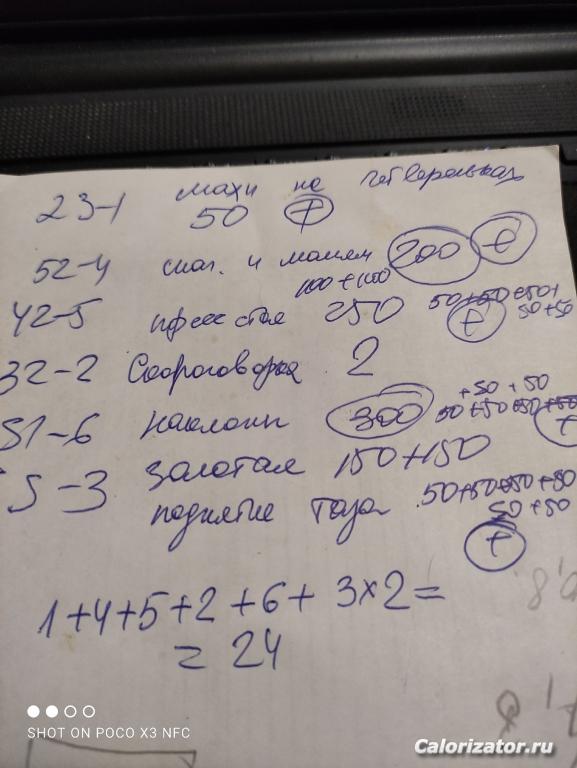 23-1 махи на четвереньках
50 +
52-4 и 200 +
100+100
42-5 пресс стоя 250 50+50+50+
+ 50+50
32-2 Скороговорка 2
+50+50
51-6 наклоны 300 50+50+50+50 +
5-3 золотая 150+150
поднятие таза 50+50+50+50
50+50
+
1+4+5+2+6+3×2=
= 24
SHOT ON POCO X3 NFC
Calorizator.ru